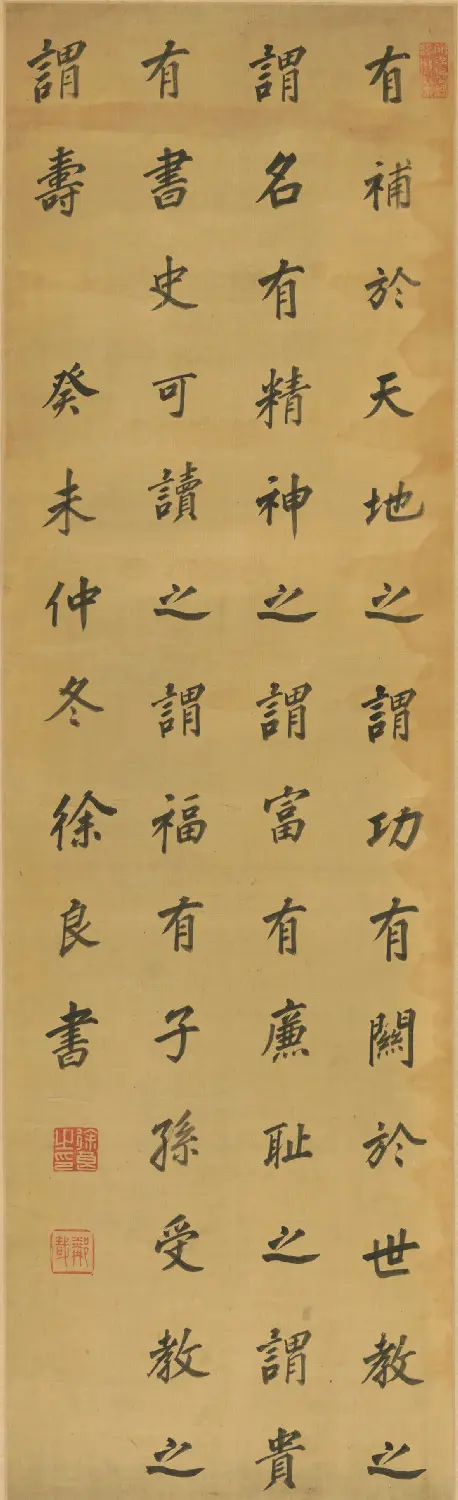 有補於天地之謂功有關於世教之
謂名有精神之謂富有廉耻之謂貴
有書史可讀之謂福有子孫受教之
謂壽 癸未仲冬徐良書
徐良之印